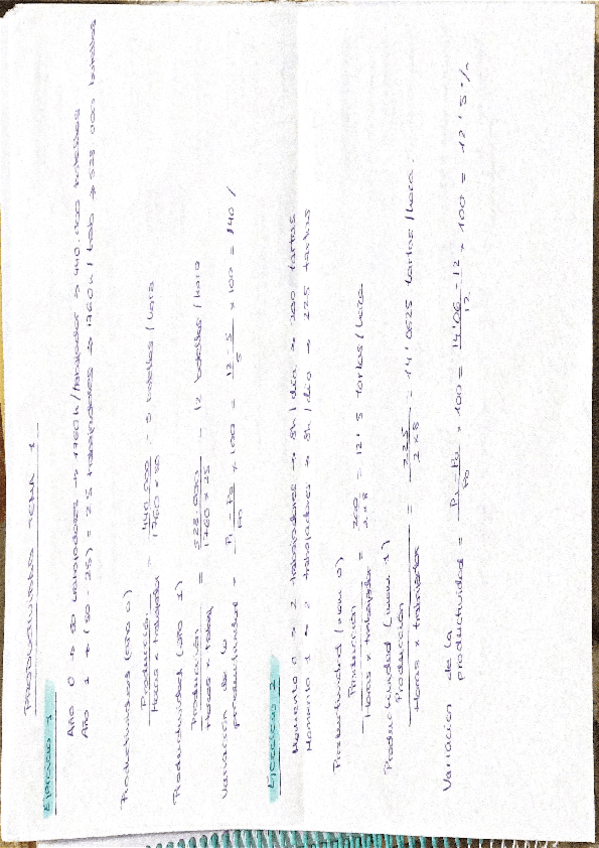 PRODUCTIVIDAD TEMA 1
Ejercicio 1
Año 0 → 50 trabajadores → 1760 h/trabajador → 440.000 botellas
Año 1 → (50 - 25) = 25 trabajadores → 1760 h / trab → 528 000 botellas
Productividad (año 0)
Producción / Horas x trabajador = 440 000 / 1760 x 50 = 5 botellas / hora
Productividad (año 1)
Producción / Horas x trabaj = 528 000 / 1760 x 25 = 12 botellas / hora
Variación de la productividad = P1 - P0 / P0 x 100 = 12 - 5 / 5 x 100 = 140 /
Ejercicio 2
Momento 0 → 2 trabajadores → 8h / día → 200 tartas
Momento 1 → 2 trabajadores → 8h / día → 225 tartas
Productividad (mom 0)
Producción / Horas x trabajador = 200 / 2 x 8 = 12'5 tartas / hora
Productividad (mom 1)
Producción / Horas x trabajador = 225 / 2 x 8 = 14'0625 tartas / hora.
Variación de la productividad = P1 - P0 / P0 x 100 = 14'06 - 12 / 12 x 100 = 12'5 %